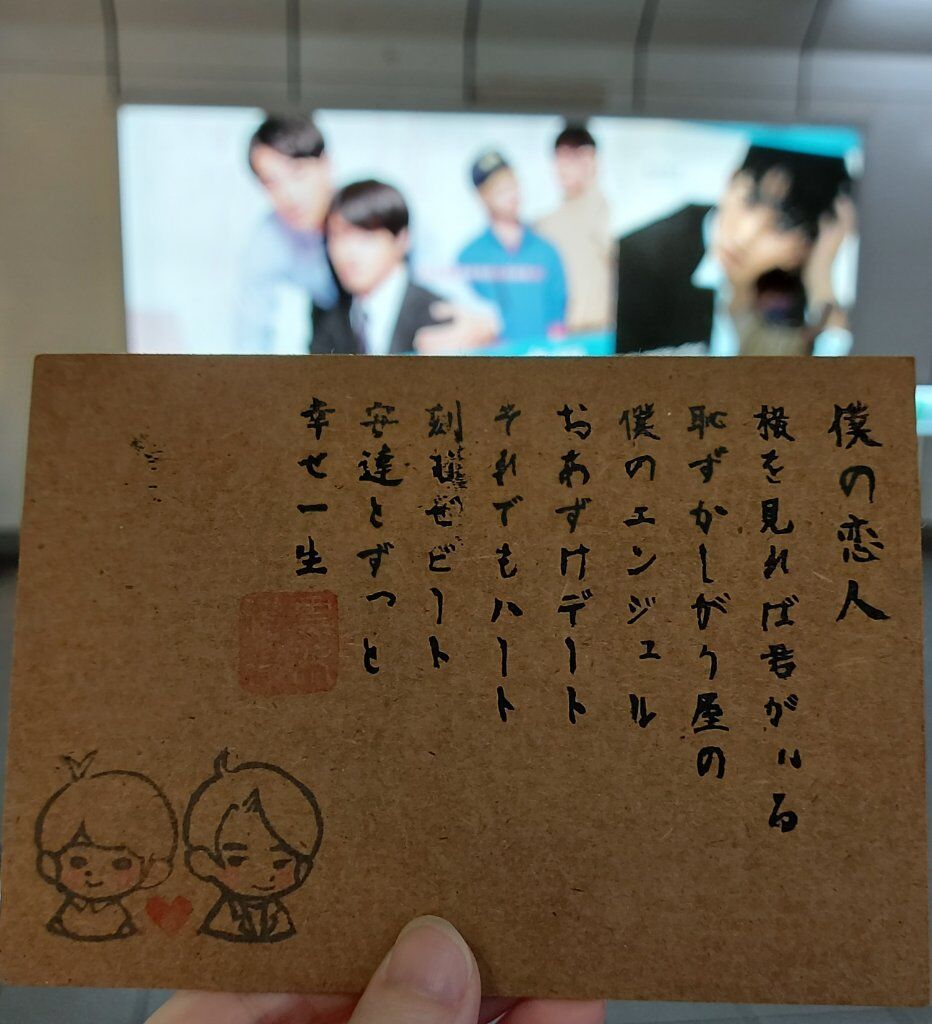 僕の恋人
横を見れば君がいる
恥ずかしがり屋の
僕のエンジェル
おあずけデート
それでもハート
刻むぜビート
安達とずっと
幸せ一生